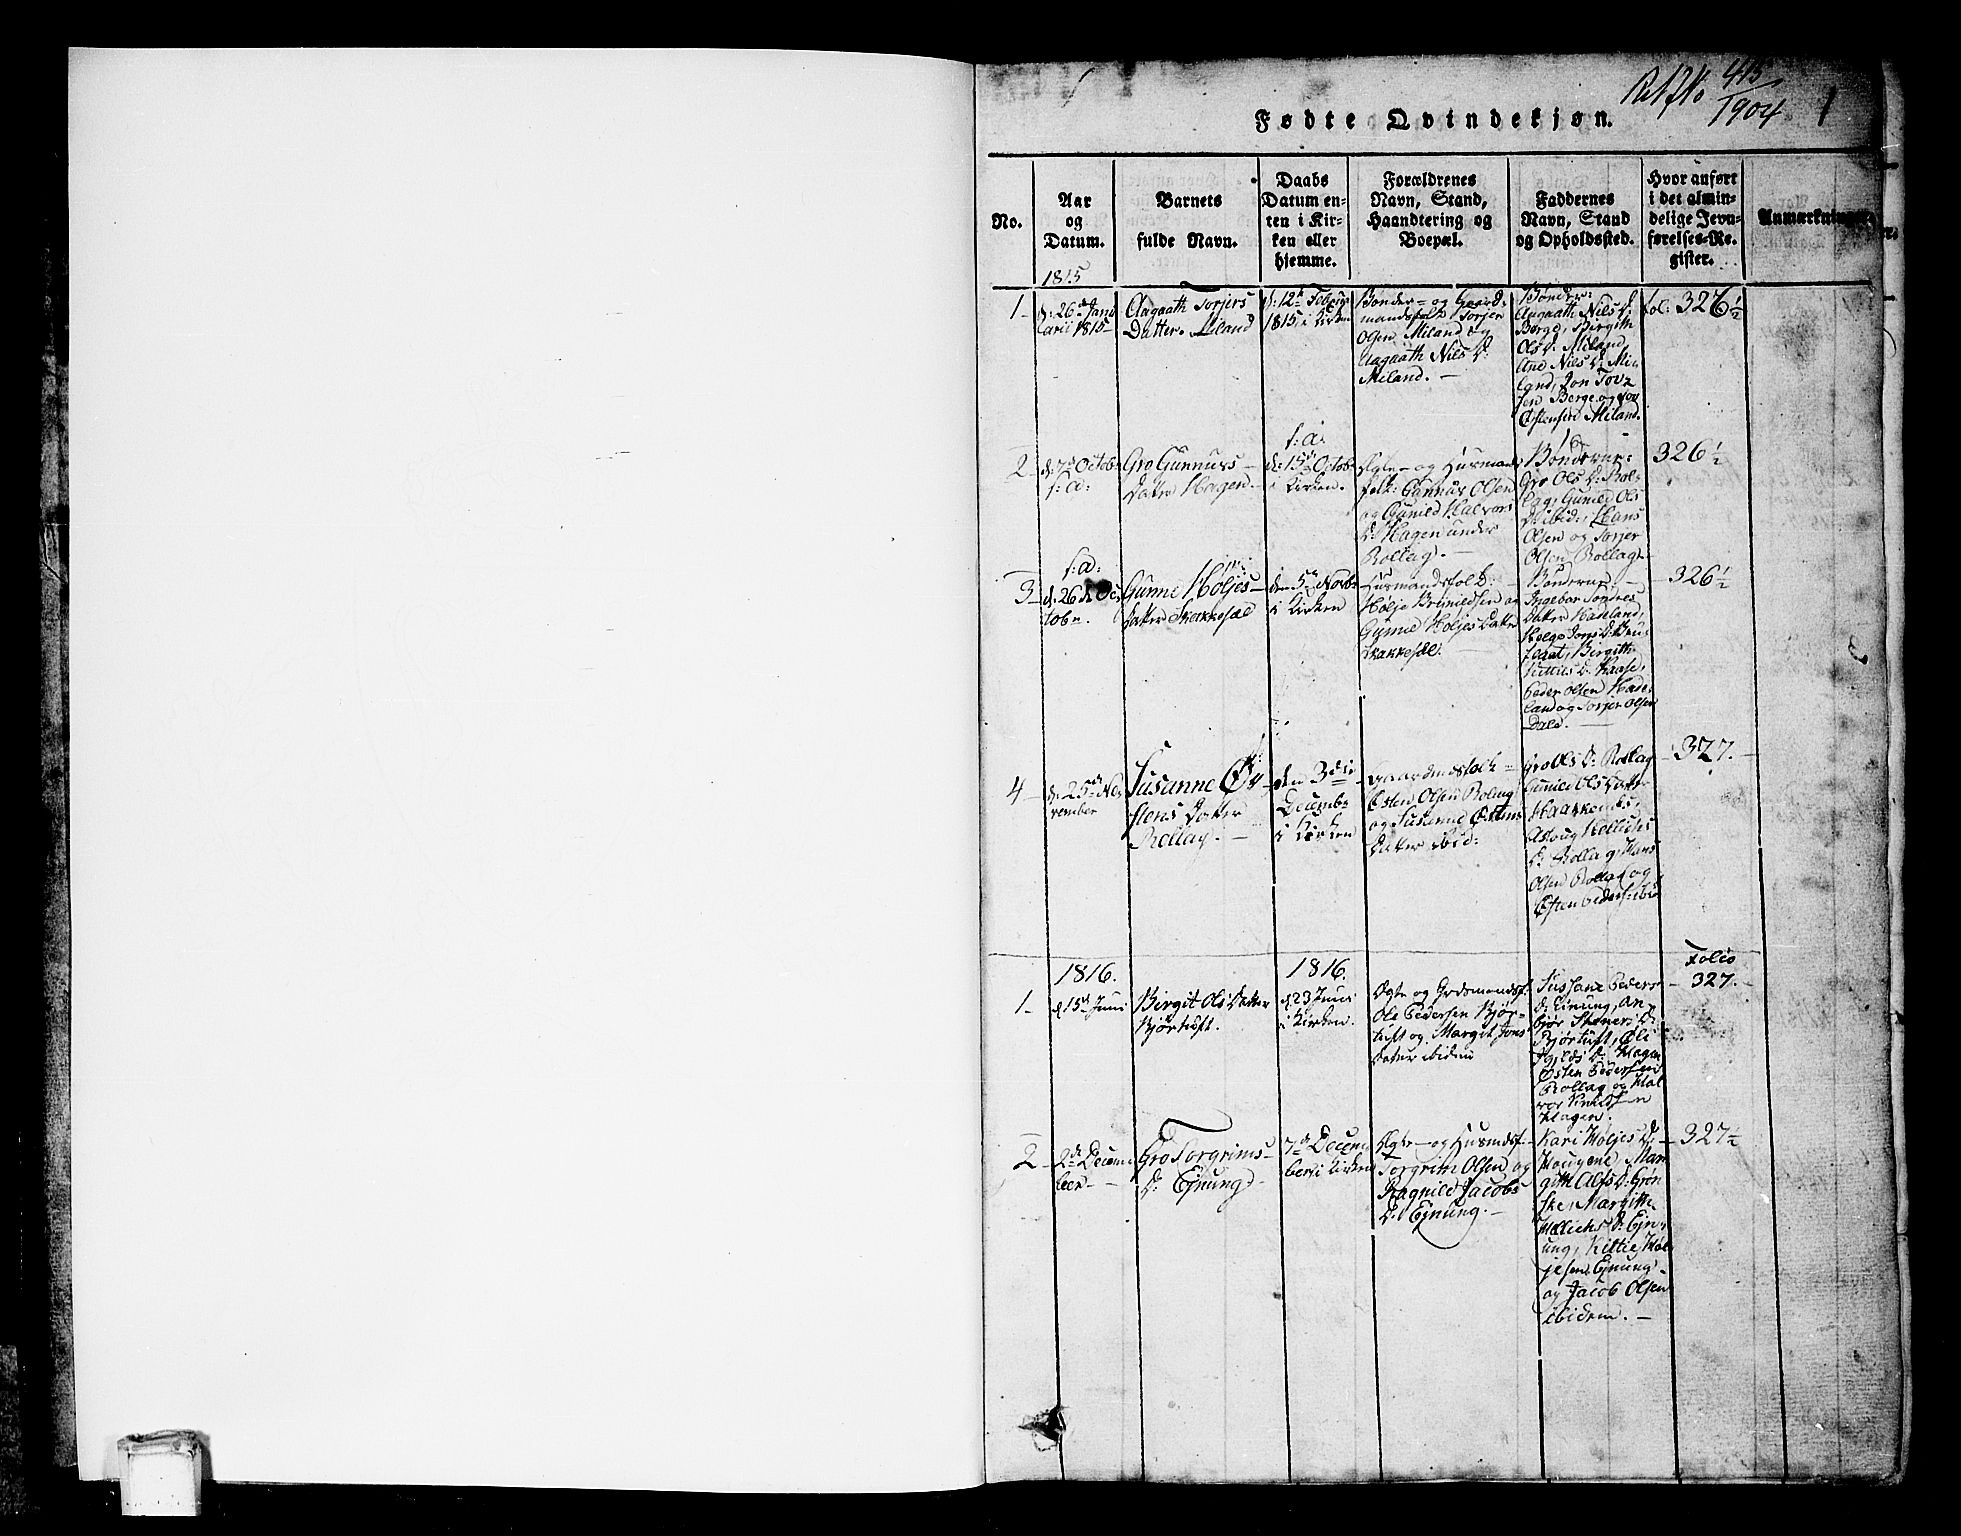 415
1904
1
Fødte Qvindekjøn.
No.
Aar
og
Datum.
Barnets
fulde Navn.
Daabs
Datum en-
ten i Kir-
ken eller
hjemme.
Forældrenes
Navn, Stand,
Haandtering og
Boepæl.
Faddernes
Navn, Stand
og Opholdssted.
Hvor anført
i det almin-
delige Jevn-
førelses-Re-
gister.
Anmærkninger
1815
1
d: 26 de Janu
arii 1815
Aagaath Torjers
Datter Miland
d: 12te Febru
1815 i Kirken
Bonder- og Gaard-
mandsfolk Torjer
Olsen Miland og
Aagaath Nils D:
Miland.
Bønder:
Aagaath Nils D:
Berge, Bergith
Ols D: Miland,
Ane Nils D: Mi-
land, Jon Tov-
sen Berge, og
Østensen Miland.
fol: 326 1/2
2
d: 7de Octobr
s: a:
Gro Gunnurs
Datter Hagen.
s: a:
d: 15de Octobr
i Kirken.
Ægte- og Husmands
folk: Gunnus Olsen
og Gunild Halvors
D: Hagen under
Rollag.
Bønderne:
Gro Ols D: Rol-
lag, Gunild Ols
D: ibid:, Hans
Olsen og Torjer
Olsen Rollag
326 1/2
3
s: a:
d: 26de Oc-
tobr.
Gunne Høljes
Datter Skakkesæl
den 5te Novbr
i Kirken
Husmandsfolk:
Hølje Brynildsen og
Gunne Høljes Datter
Skakkesæl.
Bønderne
Ingebor Sondres
Datter Hadeland,
Helge Jons D: Bru-
flaat, Bergith
Kittils D: Kaase,
Peder Olsen Hade-
land og Torjer Olsen
Dale.
326 1/2
4
d: 25de No-
vember
Susanne Øy-
stens Datter
Rollag.
den 3die
Decembr
i Kirken
Gaardmdsfolk
Østen Olsen Rolag
og Susanne Østens
Datter ibid:
Gro Ols D: Rollag
Gunild Ols Datter
Haakkenes,
Aslaug Kellichs
D: Rollag, Hans
Olsen Rollag og
Østen Peders: ibid
327.
1816.
1816.
Folio
1
d 15de Juni
Birgit Ols Datter
Bjørtuft.
d. 23 Juni
i Kirken.
Ægte og Grdsmandsf.
Ole Pedersen Bjør-
tuft og Margit Jons
Datter ibidem
Sussane Peders
D: Einung, An-
bjør Steners D:
Bjørtuft,
D: Hagen
Østen Pedersen
Rollag og Hal
vor
Hagen.
327.
2
2de Decem
ber
Gro Torgrims
D: Ejnung
7de Decem
ber i Kirken
Ægte- og Husmdsf-
Torgrim Olsen og
Ragnild Jacobs
D: Ejnung.
Kari Høljes D:
Hougene, Mar-
gith Alfs D: Grøn-
ske, Margith
Mellichs D: Ejn-
ung, Kittil Høl-
jesen Ejnung
og Jacob Olsen
ibidem.
327 1/2